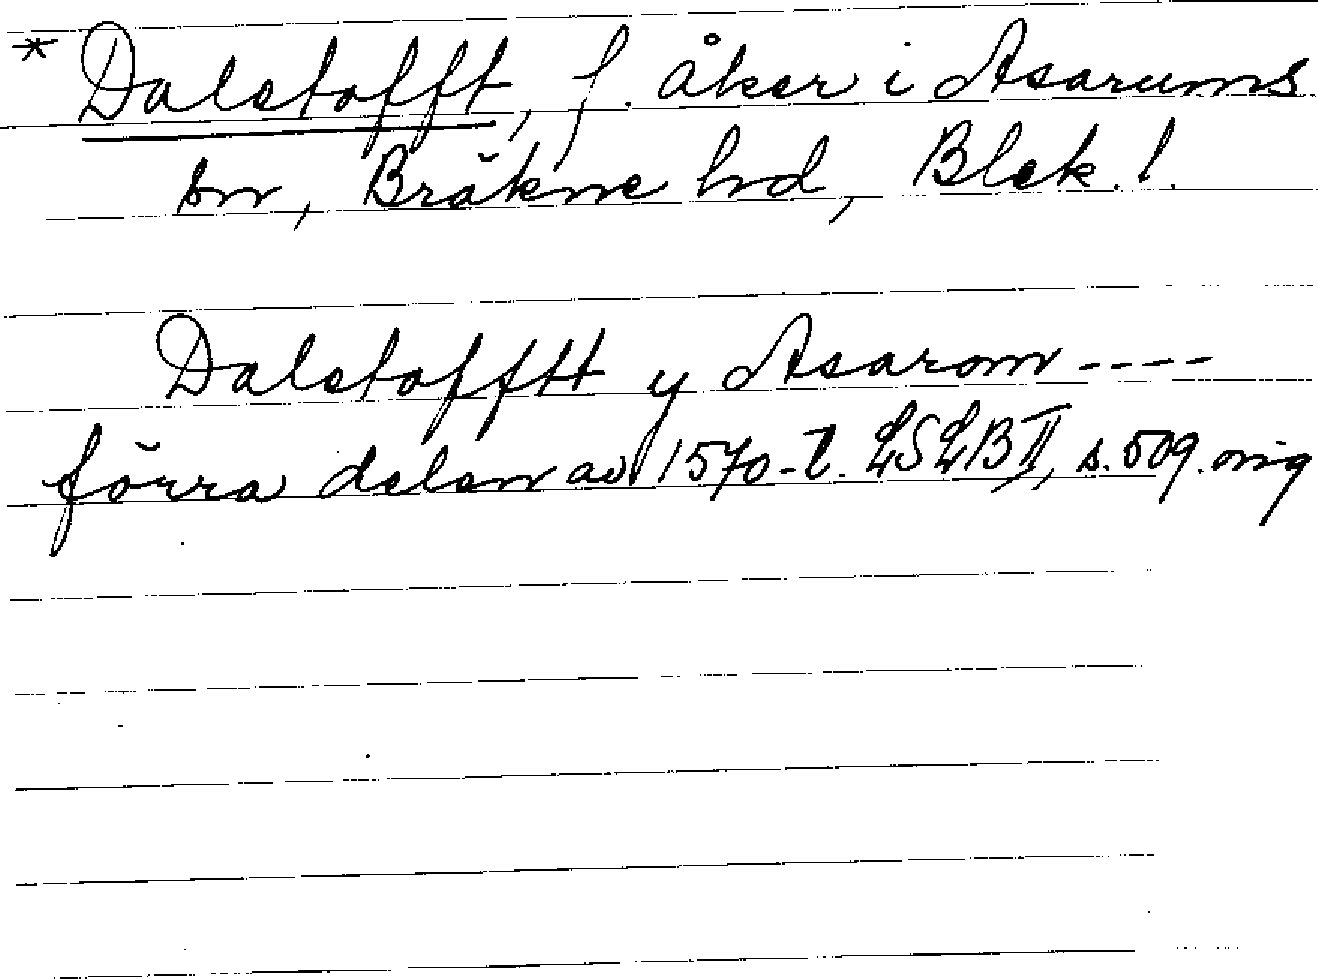 * Daletofft, f. åker i Asarums
sn, Bräkne hd, Blek. l.
Daletofftt y Asarom ----
förra delen av 1570-t. LSLB II, s. 509. orig